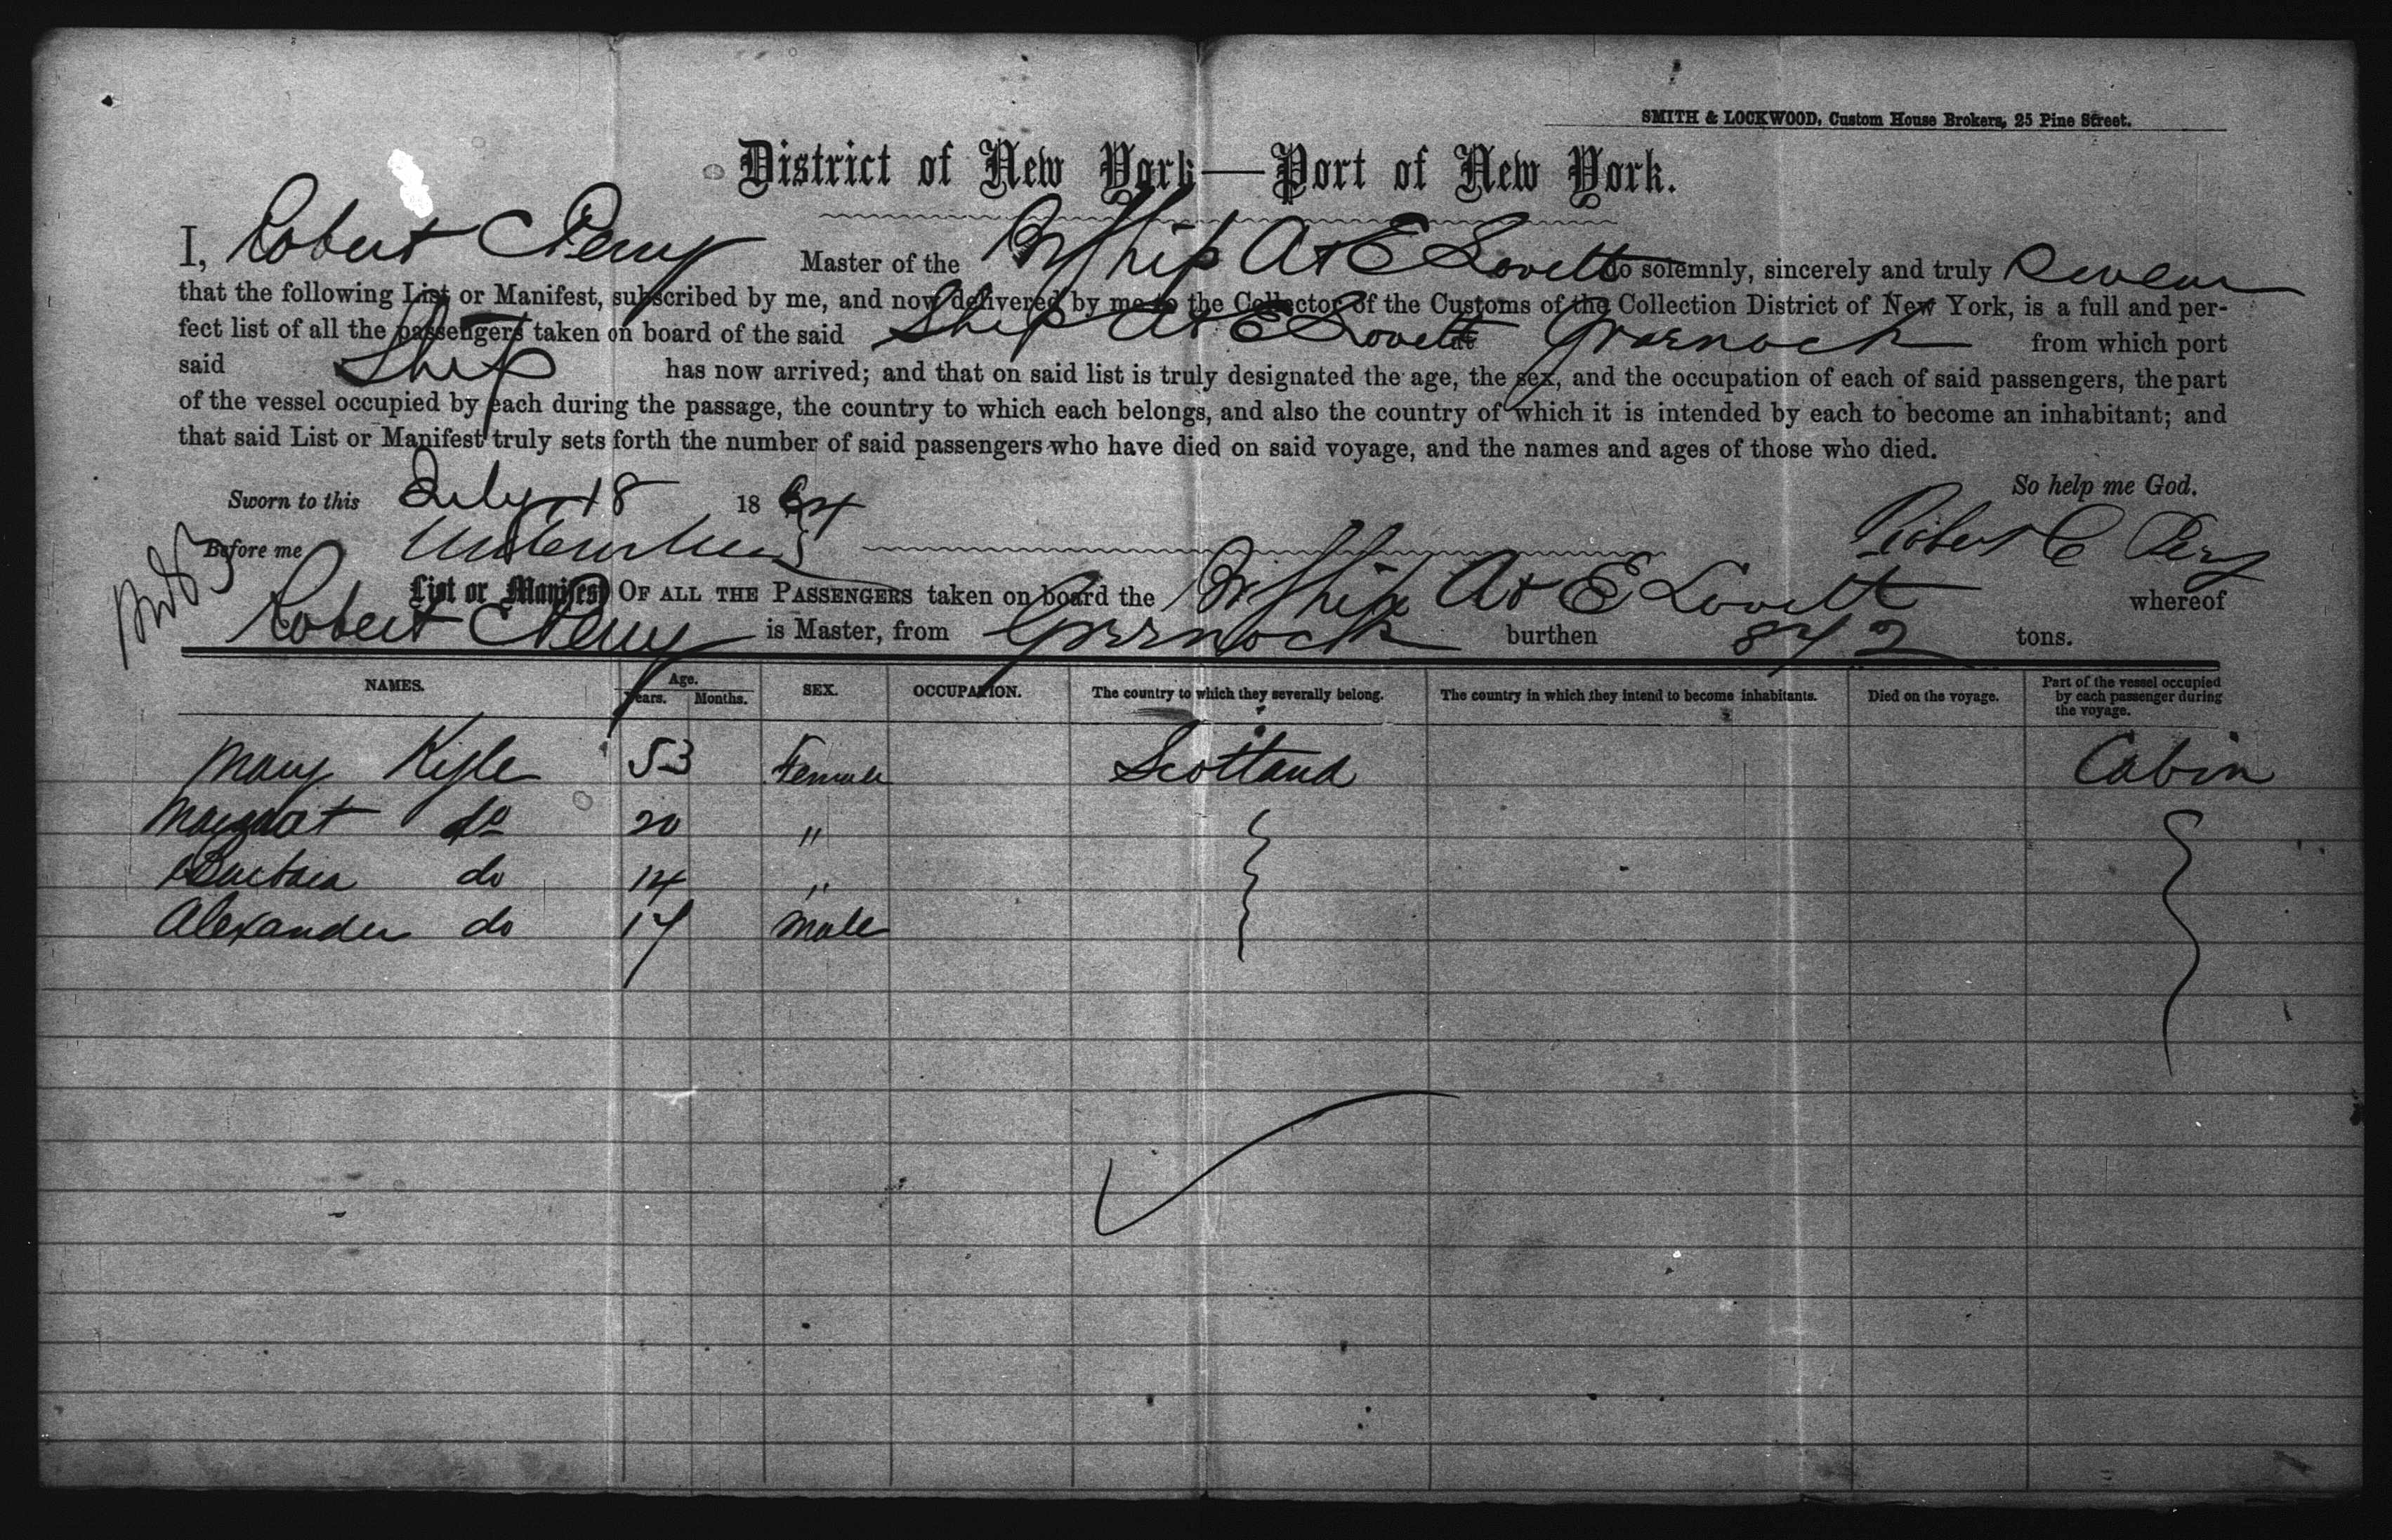 SMITH & LOCKWOOD, Custom House Brokers, 25 Pine Street.
District of New York—Port of New York.
I, Robert C Pery Master of the Br Ship A & E Lovett do solemnly, sincerely and truly Swear
that the following List or Manifest, subscribed by me, and now delivered by me to the Collector of the Customs of the Collection District of New York, is a full and per-
fect list of all the passengers taken on board of the said Ship A & E Lovett at Greenock from which port
said Ship has now arrived; and that on said list is truly designated the age, the sex, and the occupation of each of said passengers, the part
of the vessel occupied by each during the passage, the country to which each belongs, and also the country of which it is intended by each to become an inhabitant; and
that said List or Manifest truly sets forth the number of said passengers who have died on said voyage, and the names and ages of those who died.
So help me God.
Sworn to this July 18 1864
Before me Robert C Pery
List or Manifest OF ALL THE PASSENGERS taken on board the Br Ship A & E Lovett whereof
Robert C Pery is Master, from Greenock burthen 842 tons.
NAMES. Age. Years. Months. SEX. OCCUPATION. The country to which they severally belong. The country in which they intend to become inhabitants. Died on the voyage. Part of the vessel occupied by each passenger during the voyage.
Mary Kyle 53 Female Scotland Cabin
Margaret do 20 "
Barbara do 14 "
Alexander do 17 Male